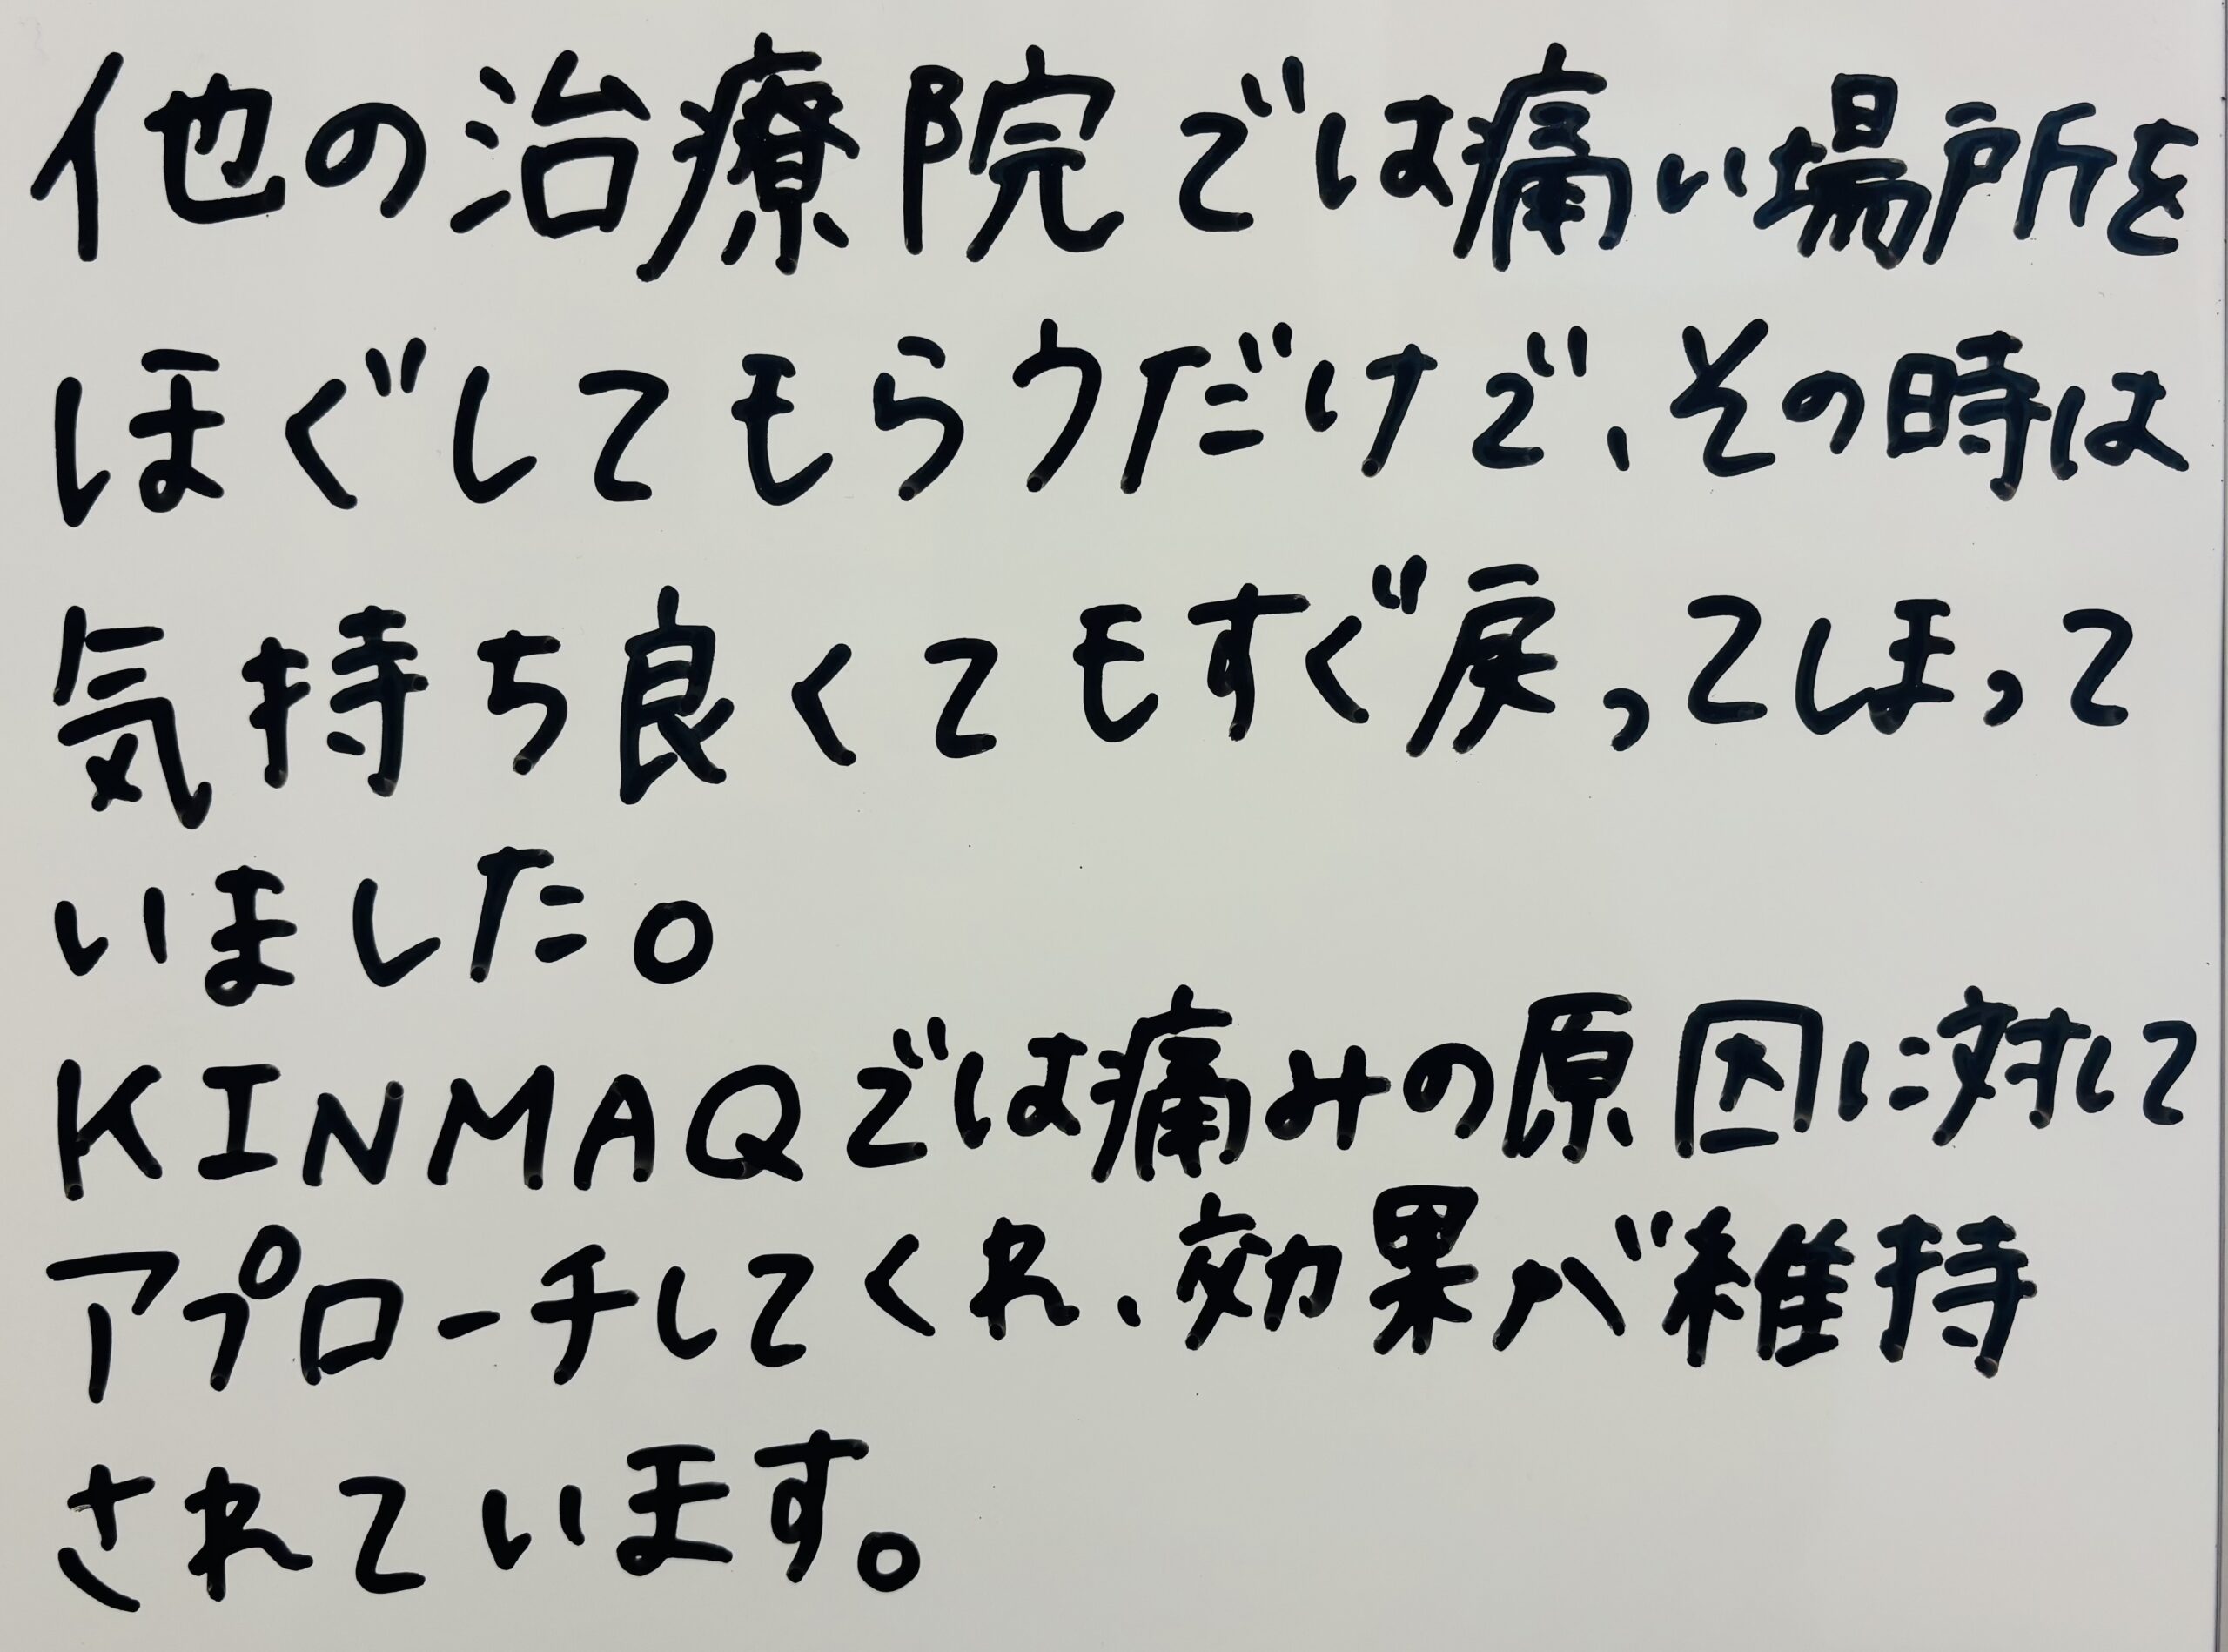 他の治療院では痛い場所を
ほぐしてもらうだけで、その時は
気持ち良くてもすぐ戻ってしまって
いました。
KINMAQでは痛みの原因に対して
アプローチしてくれ、効果が維持
されています。